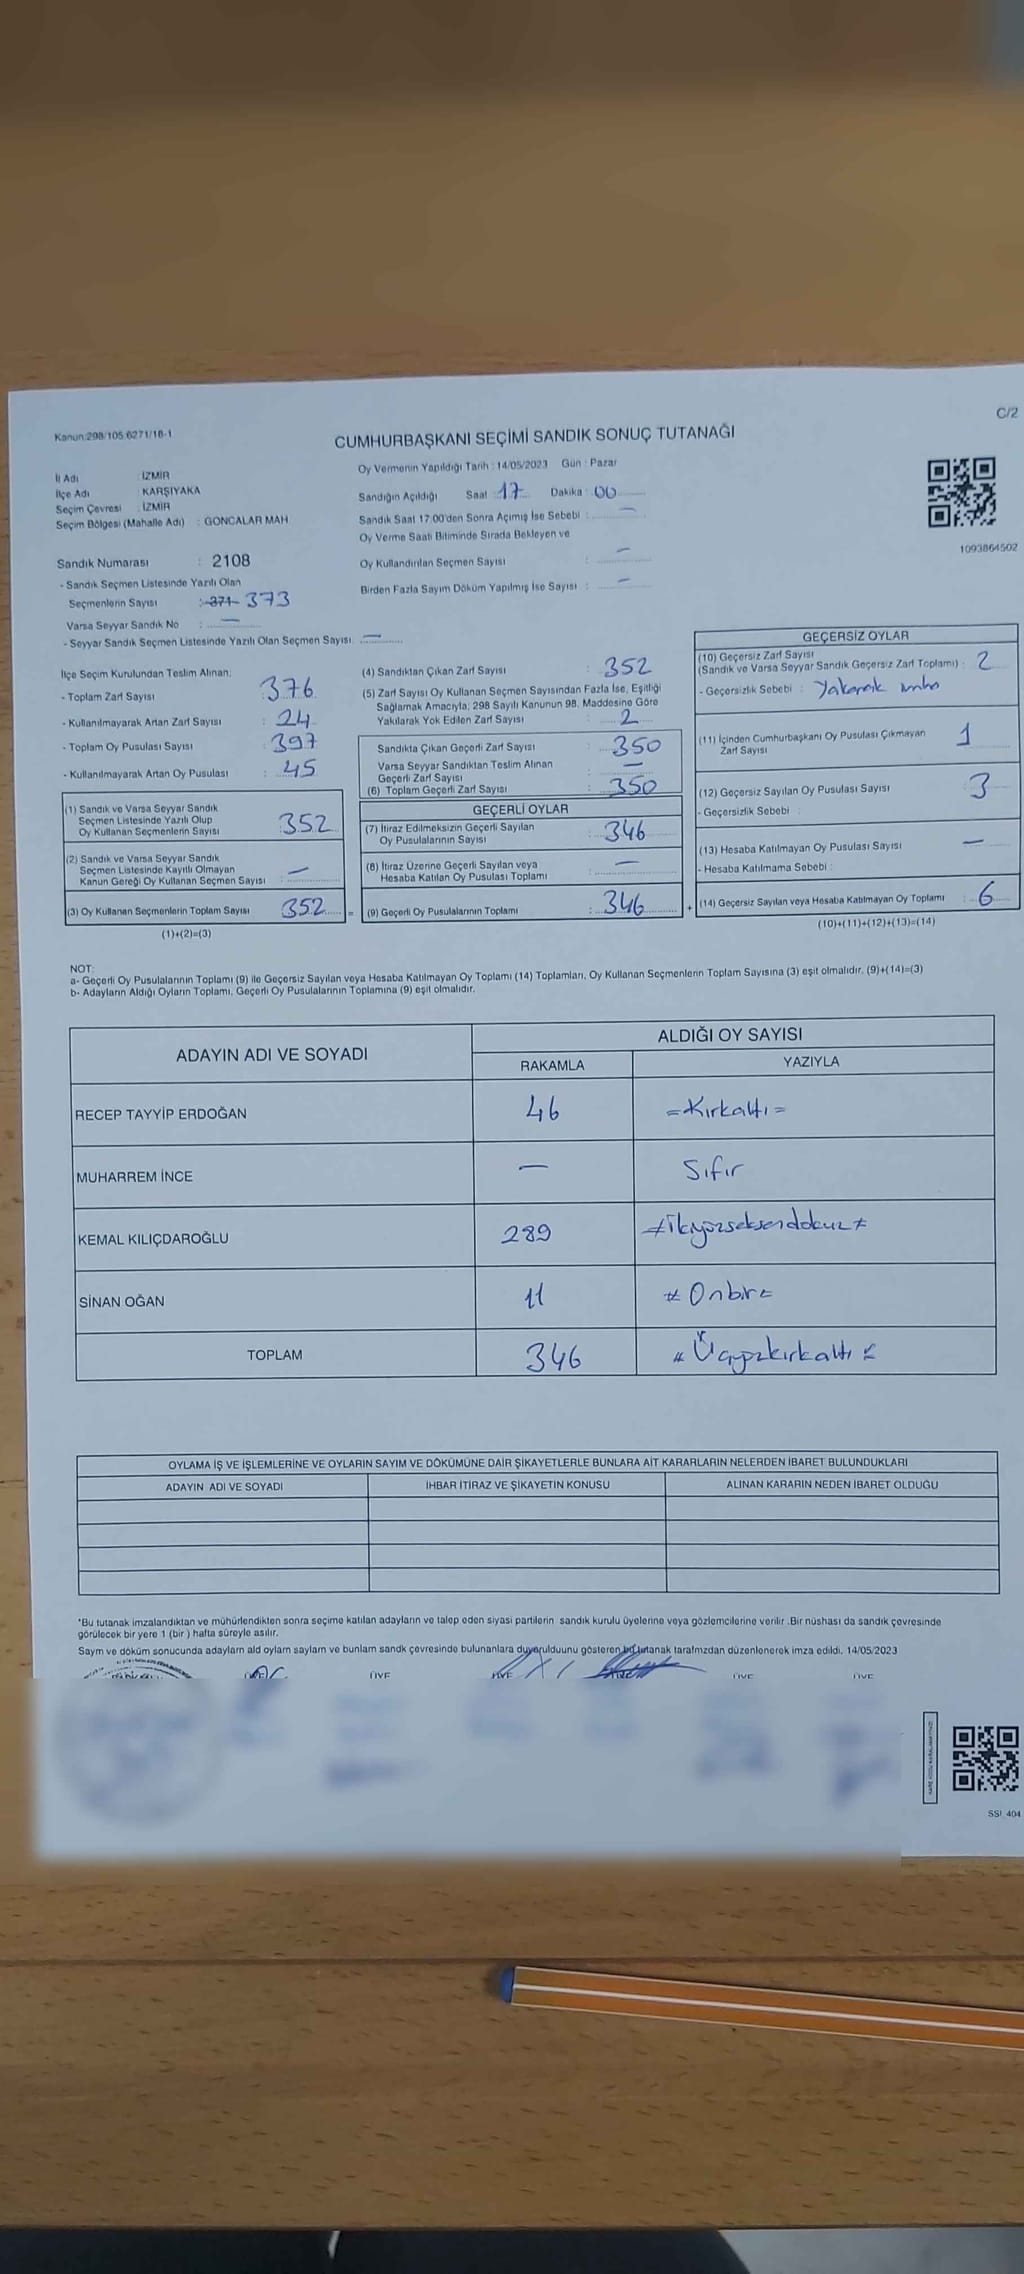 Kanun:298/105 6271/16-1
C/2
CUMHURBAŞKANI SEÇİMİ SANDIK SONUÇ TUTANAĞI
İl Adı : İZMİR
İlçe Adı : KARŞIYAKA
Seçim Çevresi : İZMİR
Seçim Bölgesi (Mahalle Adı) : GONCALAR MAH.
Oy Vermenin Yapıldığı Tarih : 14/05/2023 Gün : Pazar
Sandığın Açıldığı Saat : 17 Dakika : 00
Sandık Saat 17:00'den Sonra Açımış İse Sebebi : —
Oy Verme Saati Bitiminde Sırada Bekleyen ve
Oy Kullandırılan Seçmen Sayısı : —
Birden Fazla Sayım Döküm Yapılmış İse Sayısı : —
1093864502
Sandık Numarası : 2108
- Sandık Seçmen Listesinde Yazılı Olan
Seçmenlerin Sayısı : 371 373
Varsa Seyyar Sandık No : —
- Seyyar Sandık Seçmen Listesinde Yazılı Olan Seçmen Sayısı : —
İlçe Seçim Kurulundan Teslim Alınan:
- Toplam Zarf Sayısı : 376
- Kullanılmayarak Artan Zarf Sayısı : 24
- Toplam Oy Pusulası Sayısı : 397
- Kullanılmayarak Artan Oy Pusulası : 45
(1) Sandık ve Varsa Seyyar Sandık
Seçmen Listesinde Yazılı Olup
Oy Kullanan Seçmenlerin Sayısı : 352
(2) Sandık ve Varsa Seyyar Sandık
Seçmen Listesinde Kayıtlı Olmayan
Kanun Gereği Oy Kullanan Seçmen Sayısı : —
(3) Oy Kullanan Seçmenlerin Toplam Sayısı 352 =
(1)+(2)=(3)
(4) Sandıktan Çıkan Zarf Sayısı : 352
(5) Zarf Sayısı Oy Kullanan Seçmen Sayısından Fazla İse, Eşitliği
Sağlamak Amacıyla; 298 Sayılı Kanunun 98. Maddesine Göre
Yakılarak Yok Edilen Zarf Sayısı : 2
Sandıkta Çıkan Geçerli Zarf Sayısı : 350
Varsa Seyyar Sandıktan Teslim Alınan
Geçerli Zarf Sayısı : —
(6) Toplam Geçerli Zarf Sayısı : 350
GEÇERLİ OYLAR
(7) İtiraz Edilmeksizin Geçerli Sayılan
Oy Pusulalarının Sayısı : 346
(8) İtiraz Üzerine Geçerli Sayılan veya
Hesaba Katılan Oy Pusulası Toplamı : —
(9) Geçerli Oy Pusulalarının Toplamı : 346 +
GEÇERSİZ OYLAR
(10) Geçersiz Zarf Sayısı
(Sandık ve Varsa Seyyar Sandık Geçersiz Zarf Toplamı) : 2
- Geçersizlik Sebebi : Yakarak imha
(11) İçinden Cumhurbaşkanı Oy Pusulası Çıkmayan
Zarf Sayısı 1
(12) Geçersiz Sayılan Oy Pusulası Sayısı 3
- Geçersizlik Sebebi :
(13) Hesaba Katılmayan Oy Pusulası Sayısı —
- Hesaba Katılmama Sebebi :
(14) Geçersiz Sayılan veya Hesaba Katılmayan Oy Toplamı : 6
(10)+(11)+(12)+(13)=(14)
NOT:
a- Geçerli Oy Pusulalarının Toplamı (9) ile Geçersiz Sayılan veya Hesaba Katılmayan Oy Toplamı (14) Toplamları, Oy Kullanan Seçmenlerin Toplam Sayısına (3) eşit olmalıdır. (9)+(14)=(3)
b- Adayların Aldığı Oyların Toplamı, Geçerli Oy Pusulalarının Toplamına (9) eşit olmalıdır.
ADAYIN ADI VE SOYADI ALDIĞI OY SAYISI
RAKAMLA YAZIYLA
RECEP TAYYİP ERDOĞAN 46 =Kırkaltı=
MUHARREM İNCE — Sıfır
KEMAL KILIÇDAROĞLU 289 #ikiyüzseksendokuz#
SİNAN OĞAN 11 # Onbir=
TOPLAM 346 Üçyüzkırkaltı
OYLAMA İŞ VE İŞLEMLERİNE VE OYLARIN SAYIM VE DÖKÜMÜNE DAİR ŞİKAYETLERLE BUNLARA AİT KARARLARIN NELERDEN İBARET BULUNDUKLARI
ADAYIN ADI VE SOYADI İHBAR İTİRAZ VE ŞİKAYETİN KONUSU ALINAN KARARIN NEDEN İBARET OLDUĞU
*Bu tutanak imzalandıktan ve mühürlendikten sonra seçime katılan adayların ve talep eden siyasi partilerin sandık kurulu üyelerine veya gözlemcilerine verilir .Bir nüshası da sandık çevresinde
görülecek bir yere 1 (bir ) hafta süreyle asılır.
Saym ve döküm sonucunda adaylarn ald oylarn saylarn ve bunlarn sandk çevresinde bulunanlara duyurulduunu gösteren bu tutanak tarafmzdan düzenlenerek imza edildi. 14/05/2023
ÜYE ÜYE ÜYE ÜYE ÜYE
SSI_404